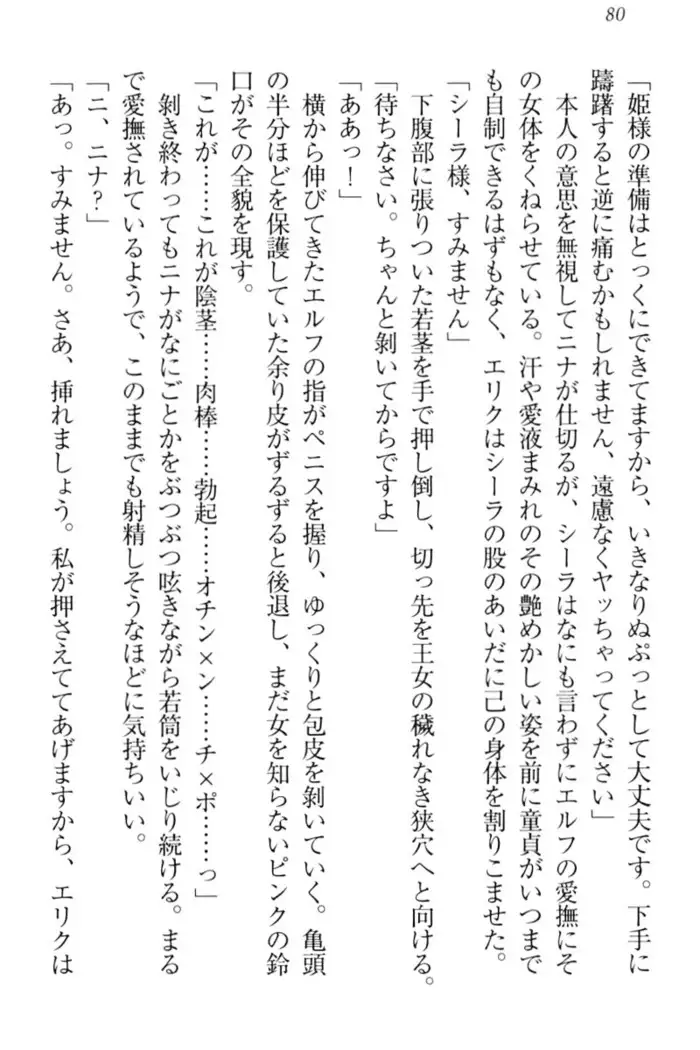 80
「姫様の準備はとっくにできてますから、いきなりぬぷっとして大丈夫です。下手に
躊躇すると逆に痛むかもしれません、遠慮なくヤッちゃってください」
本人の意思を無視してニナが仕切るが、シーラはなにも言わずにエルフの愛撫にそ
の女体をくねらせている。汗や愛液まみれのその艶めかしい姿を前に童貞がいつまで
も自制できるはずもなく、エリクはシーラの股のあいだに己の身体を割りこませた。
「シーラ様、すみません」
下腹部に張りついた若茎を手で押し倒し、切っ先を王女の穢れなき狭穴へと向ける。
「待ちなさい。ちゃんと剝いてからですよ」
「ああっ！」
横から伸びてきたエルフの指がペニスを握り、ゆっくりと包皮を剝いていく。亀頭
の半分ほどを保護していた余り皮がずるずると後退し、まだ女を知らないピンクの鈴
口がその全貌を現す。
「これが……これが陰茎……肉棒……勃起……オチン×ン……チ×ポ……っ」
剝き終わってもニナがなにごとかをぶつぶつ呟きながら若筒をいじり続ける。まる
で愛撫されているようで、このままでも射精しそうなほどに気持ちいい。
「ニ、ニナ？」
「あっ。すみません。さあ、挿れましょう。私が押さえててあげますから、エリクは